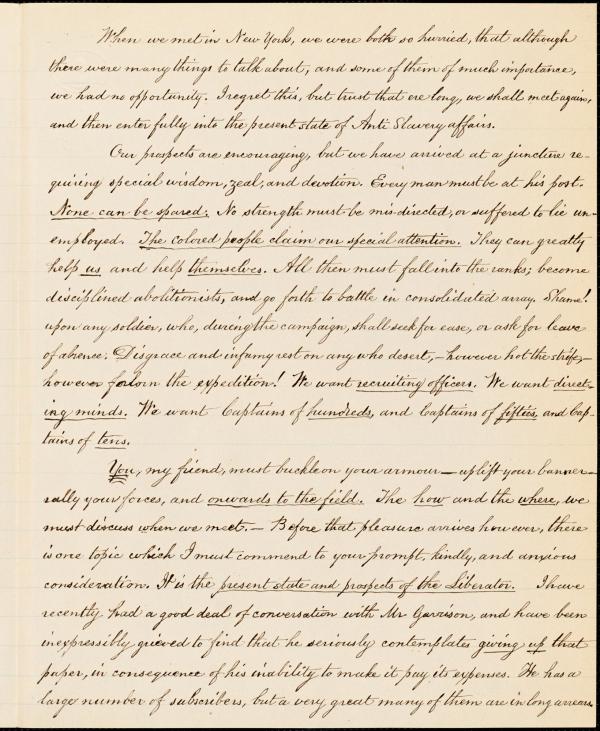 When we met in New York, we were both so hurried, that although
there were many things to talk about, and some of them of much importance,
we had no opportunity. I regret this, but trust that ere long, we shall meet again,
and then enter fully into the present state of Anti Slavery affairs.
Our prospects are encouraging, but we have arrived at a juncture re-
quiring special wisdom, zeal, and devotion. Every man must be at his post.
None can be spared. No strength must be mis-directed, or suffered to lie un-
employed. The colored people claim our special attention. They can greatly
help us, and help themselves. All then must fall into the ranks; become
disciplined abolitionists, and go forth to battle in consolidated array. Shame!
upon any soldier, who, during the campaign, shall seek for ease, or ask for leave
of absence. Disgrace and infamy rest on any who desert, – however hot the strife, –
however forlorn the expedition! We want recruiting officers. We want direct-
ing minds. We want Captains of hundreds, and Captains of fifties, and Cap-
tains of tens.
You, my friend, must buckle on your armour – uplift your banner –
rally your forces, and onwards to the field. The how and the where, we
must discuss when we meet. – Before that pleasure arrives however, there
is one topic which I must commend to your prompt, kindly, and anxious
consideration. It is the present state and prospects of the Liberator. I have
recently had a good deal of conversation with Mr Garrison, and have been
inexpressibly grieved to find that he seriously contemplates giving up that
paper, in consequence of his inability to make it pay its expenses. He has a
large number of subscribers, but a very great many of them are in long arrears.